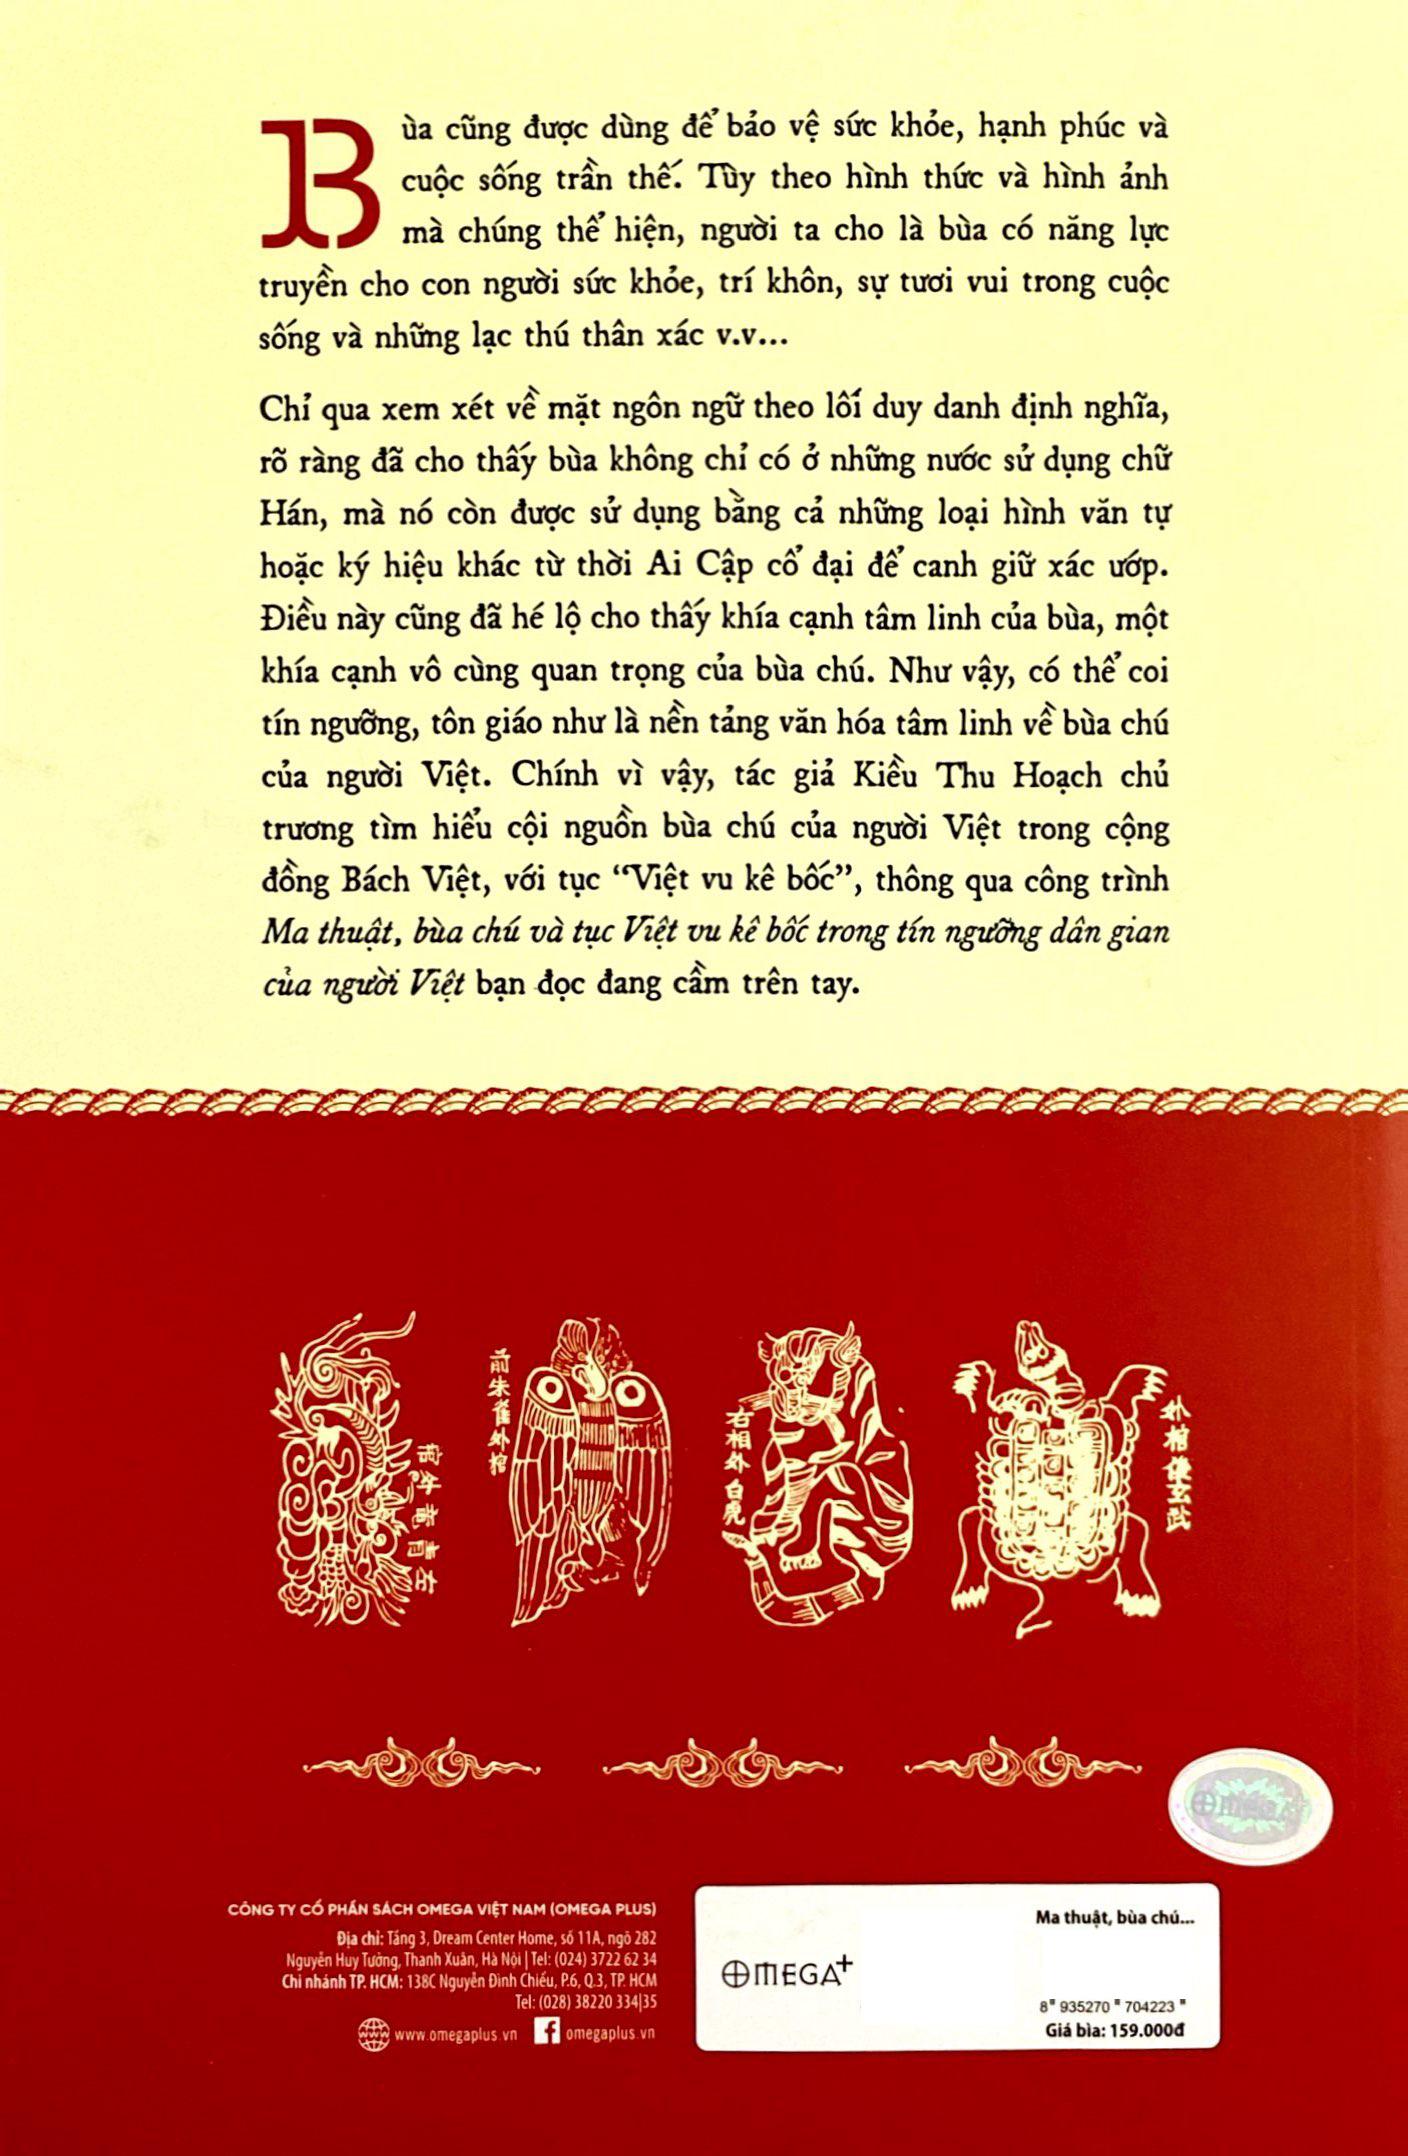 Bùa cũng được dùng để bảo vệ sức khỏe, hạnh phúc và
cuộc sống trần thế. Tùy theo hình thức và hình ảnh
mà chúng thể hiện, người ta cho là bùa có năng lực
truyền cho con người sức khỏe, trí khôn, sự tươi vui trong cuộc
sống và những lạc thú thân xác v.v...
Chỉ qua xem xét về mặt ngôn ngữ theo lối duy danh định nghĩa,
rõ ràng đã cho thấy bùa không chỉ có ở những nước sử dụng chữ
Hán, mà nó còn được sử dụng bằng cả những loại hình văn tự
hoặc ký hiệu khác từ thời Ai Cập cổ đại để canh giữ xác ướp.
Điều này cũng đã hé lộ cho thấy khía cạnh tâm linh của bùa, một
khía cạnh vô cùng quan trọng của bùa chú. Như vậy, có thể coi
tín ngưỡng, tôn giáo như là nền tảng văn hóa tâm linh về bùa chú
của người Việt. Chính vì vậy, tác giả Kiều Thu Hoạch chủ
trương tìm hiểu cội nguồn bùa chú của người Việt trong cộng
đồng Bách Việt, với tục “Việt vu kê bốc”, thông qua công trình
Ma thuật, bùa chú và tục Việt vu kê bốc trong tín ngưỡng dân gian
của người Việt bạn đọc đang cầm trên tay.
前朱雀外棺
右相外白虎
玄武
OMEGA+
CÔNG TY CỔ PHẦN SÁCH OMEGA VIỆT NAM (OMEGA PLUS)
Địa chỉ: Tầng 3, Dream Center Home, số 11A, ngõ 282
Nguyễn Huy Tưởng, Thanh Xuân, Hà Nội | Tel: (024) 3722 62 34
Chi nhánh TP. HCM: 138C Nguyễn Đình Chiểu, P.6, Q.3, TP. HCM
Tel: (028) 38220 334|35
www.omegaplus.vn omegaplus.vn
Ma thuật, bùa chú...
OMEGA+
8 935270 704223
Giá bìa: 159.000đ